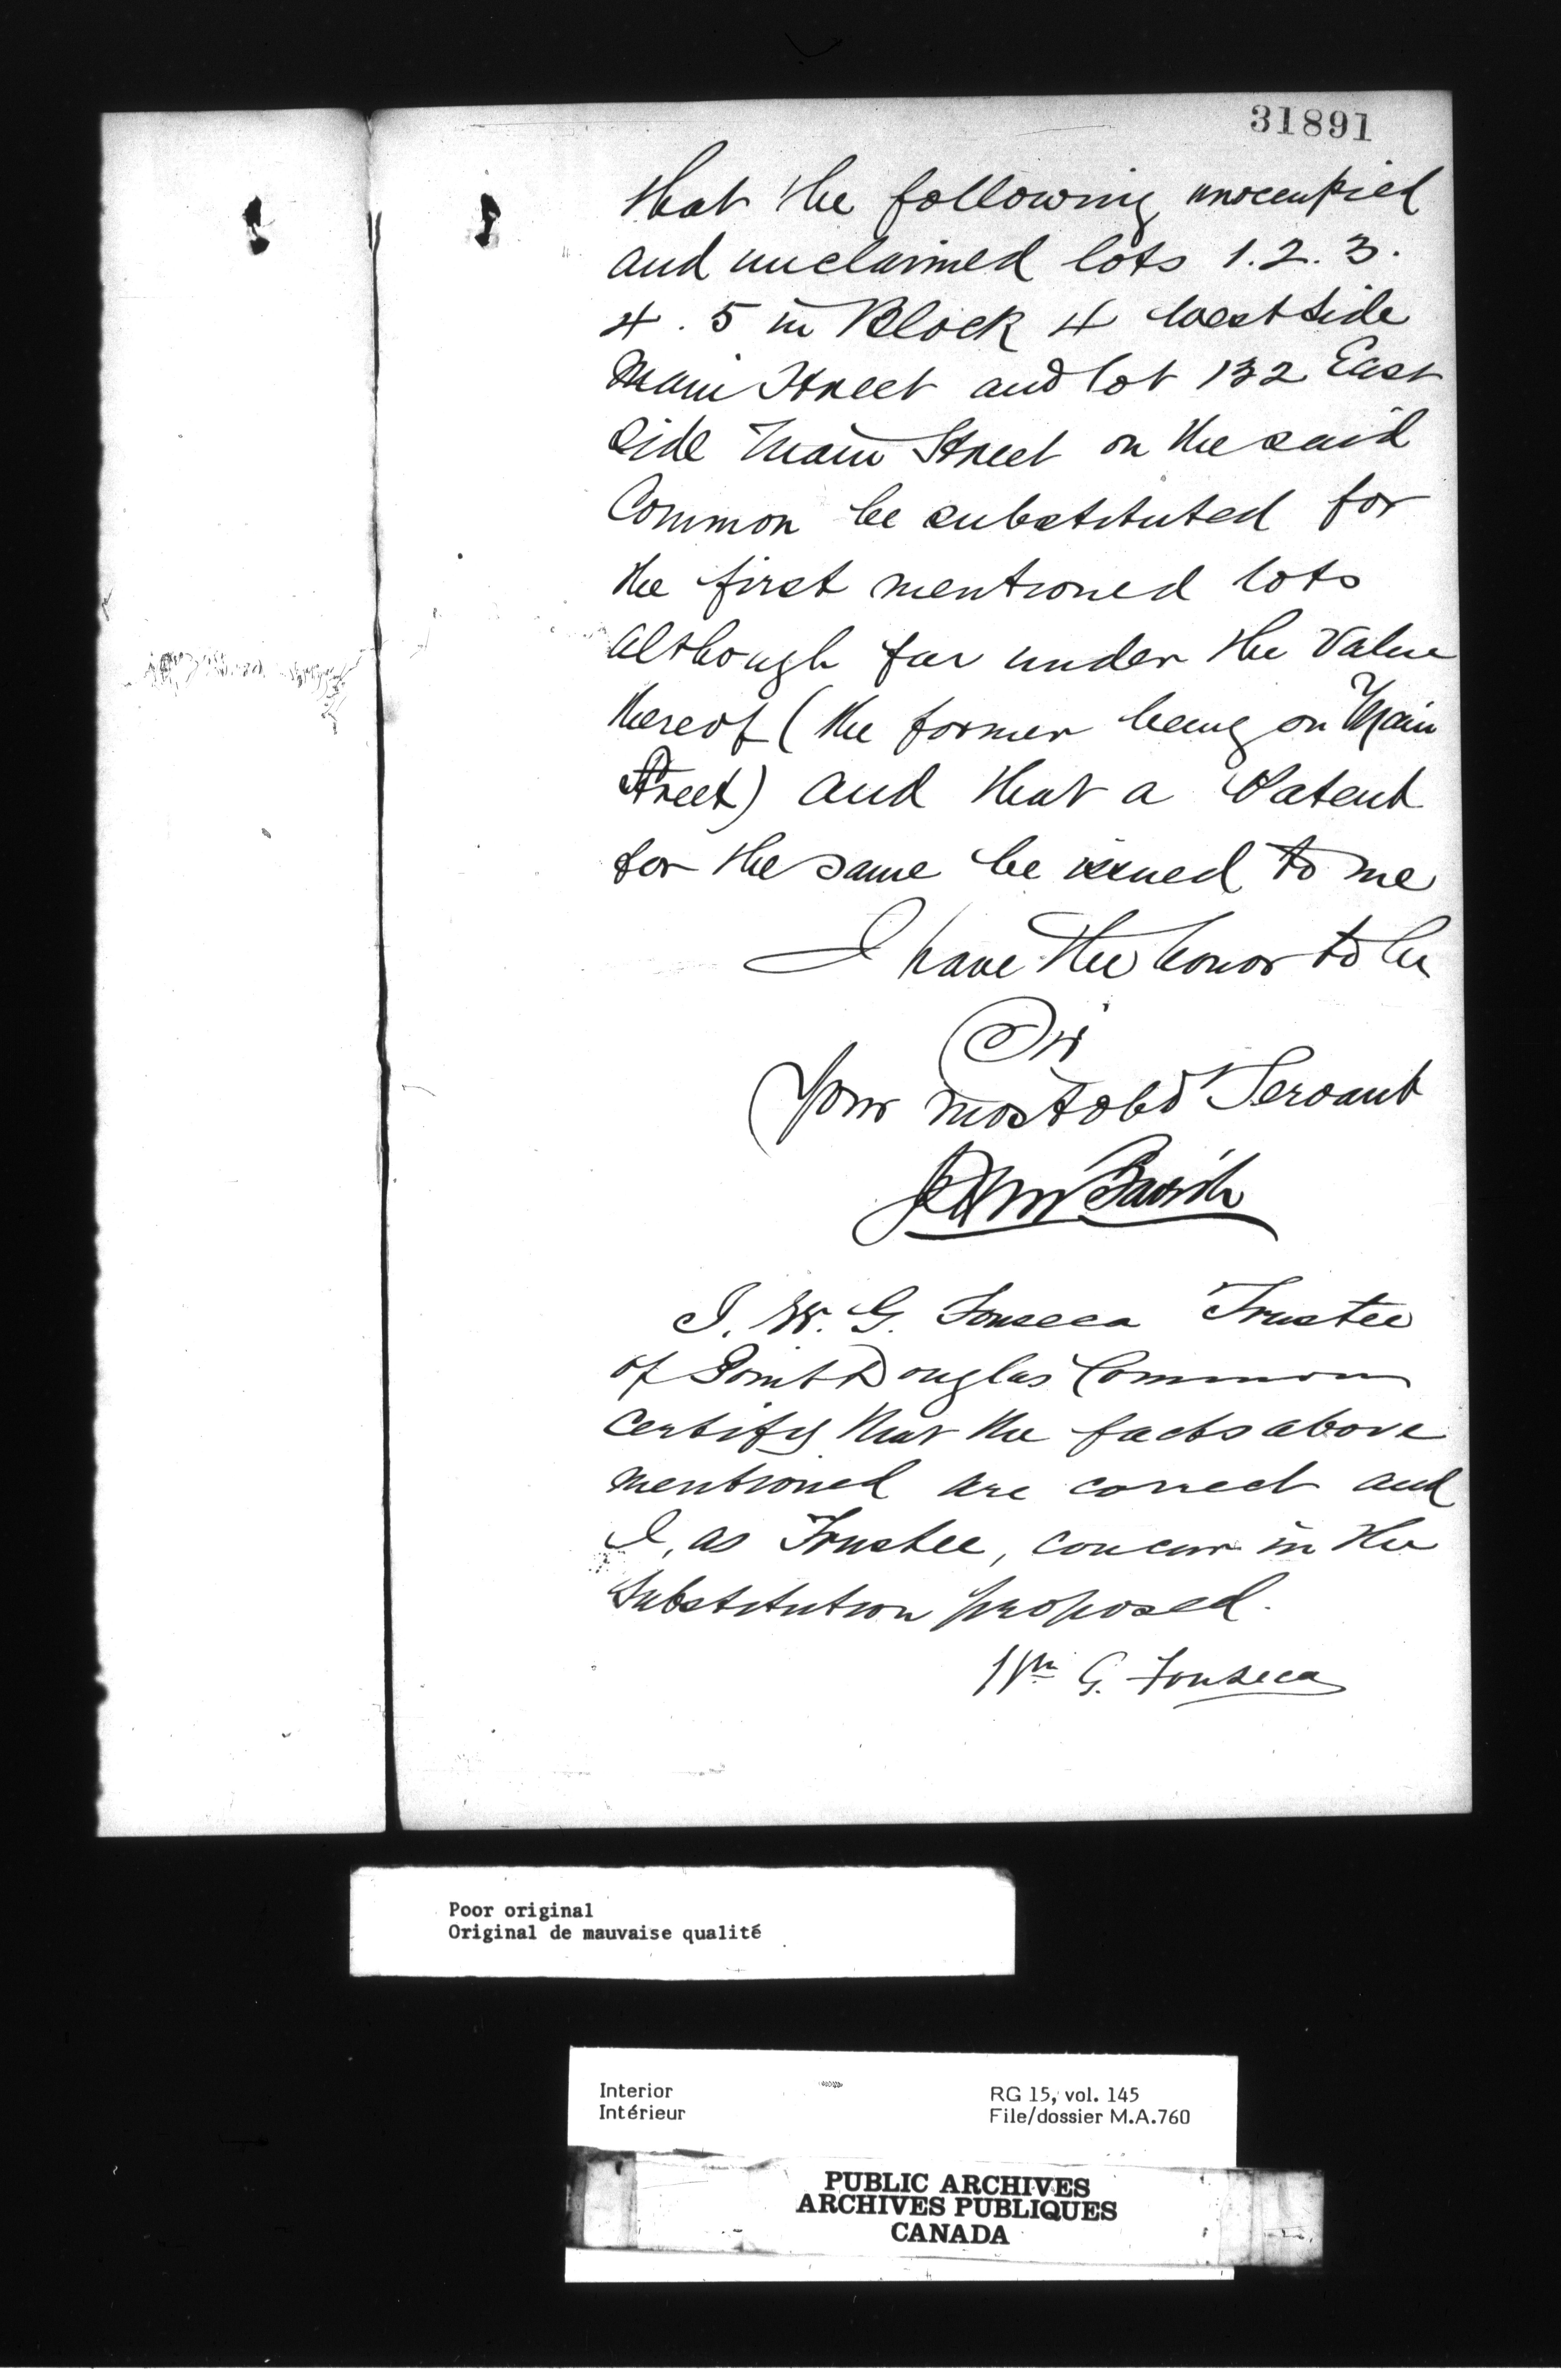 31891
that the following unoccupied
and unclaimed lots 1. 2. 3.
4. 5 in Block 4 West Side
Main Street and lot 132 East
side Main Street on the said
Common be substituted for
the first mentioned lots
although far under the value
thereof (the former being on Main
Street) and that a Patent
for the same be issued to me
I have the honor to be
Sir
Your most obd Servant
John
I. W. G. Fonseca Trustee
of Point Douglas Common
certify that the facts above
mentioned are correct and
I, as Trustee, concur in the
substitution proposed.
Wm G. Fonseca
Poor original
Original de mauvaise qualité
Interior
Intérieur
RG 15, vol. 145
File/dossier M.A.760
PUBLIC ARCHIVES
ARCHIVES PUBLIQUES
CANADA